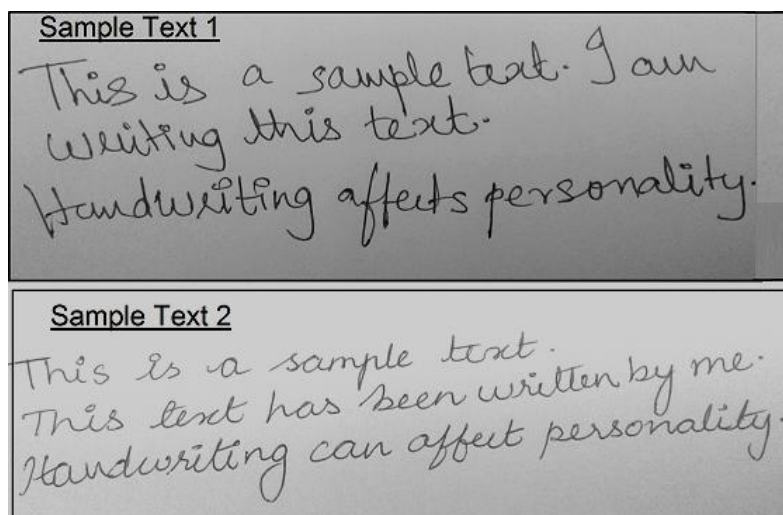 Sample Text 1
This is a sample text. I am
writing this text.
Handwriting affects personality.
Sample Text 2
This is a sample text.
This text has been written by me.
Handwriting can affect personality.